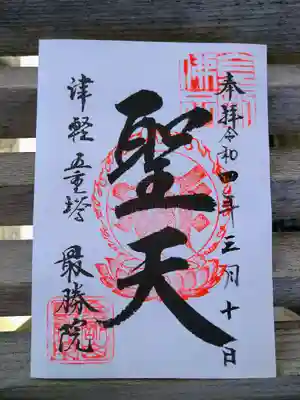 奉拝 令和四年三月十一日
聖天
津軽五重塔
最勝院